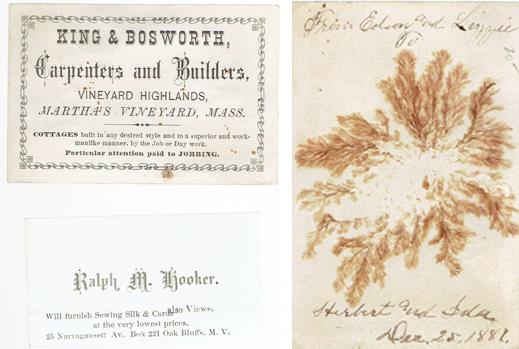 KING & BOSWORTH,
Carpenters and Builders,
VINEYARD HIGHLANDS,
MARTHA'S VINEYARD, MASS.
COTTAGES built in any desired style and in a superior and work-
manlike manner, by the Job or Day work.
Particular attention paid to JOBBING.
Ralph M. Hooker.
Will furnish Sewing Silk & Cards also Views,
at the very lowest prices,
25 Narragansett Av. Box 221 Oak Bluffs, M. V.
From Edson and Lizzie
To
Herbert and Ida.
Dec. 25. 1881.